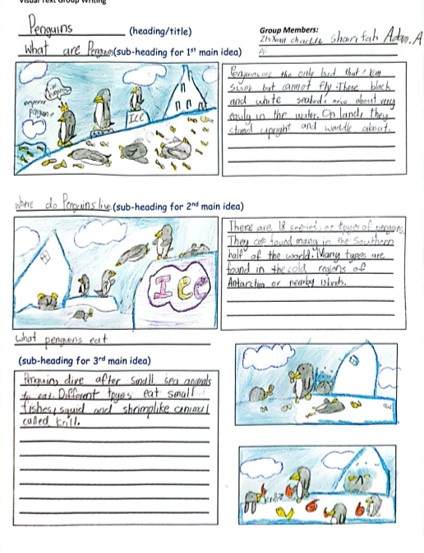 Visual Text Group Writing
Penguins (heading/title)
Group Members:
Sharifah Adam. A
What are Penguins (sub-heading for 1st main idea)
emperor Penguin
ICE
Penguins are the only bird that can
swim but cannot fly. These black
and white move about very
easily in the water. On land, they
stand upright and waddle about.
Where do Penguins live (sub-heading for 2nd main idea)
Ice
There are 18 species or types of penguins.
They are found mainly in the Southern
half of the world. Many types are
found in the cold regions of
Antarctica or nearby islands.
What penguins eat
(sub-heading for 3rd main idea)
Penguins dive after small sea animals
to eat. Different types eat small
fishes, squid and shrimplike animal
called krill.
krill